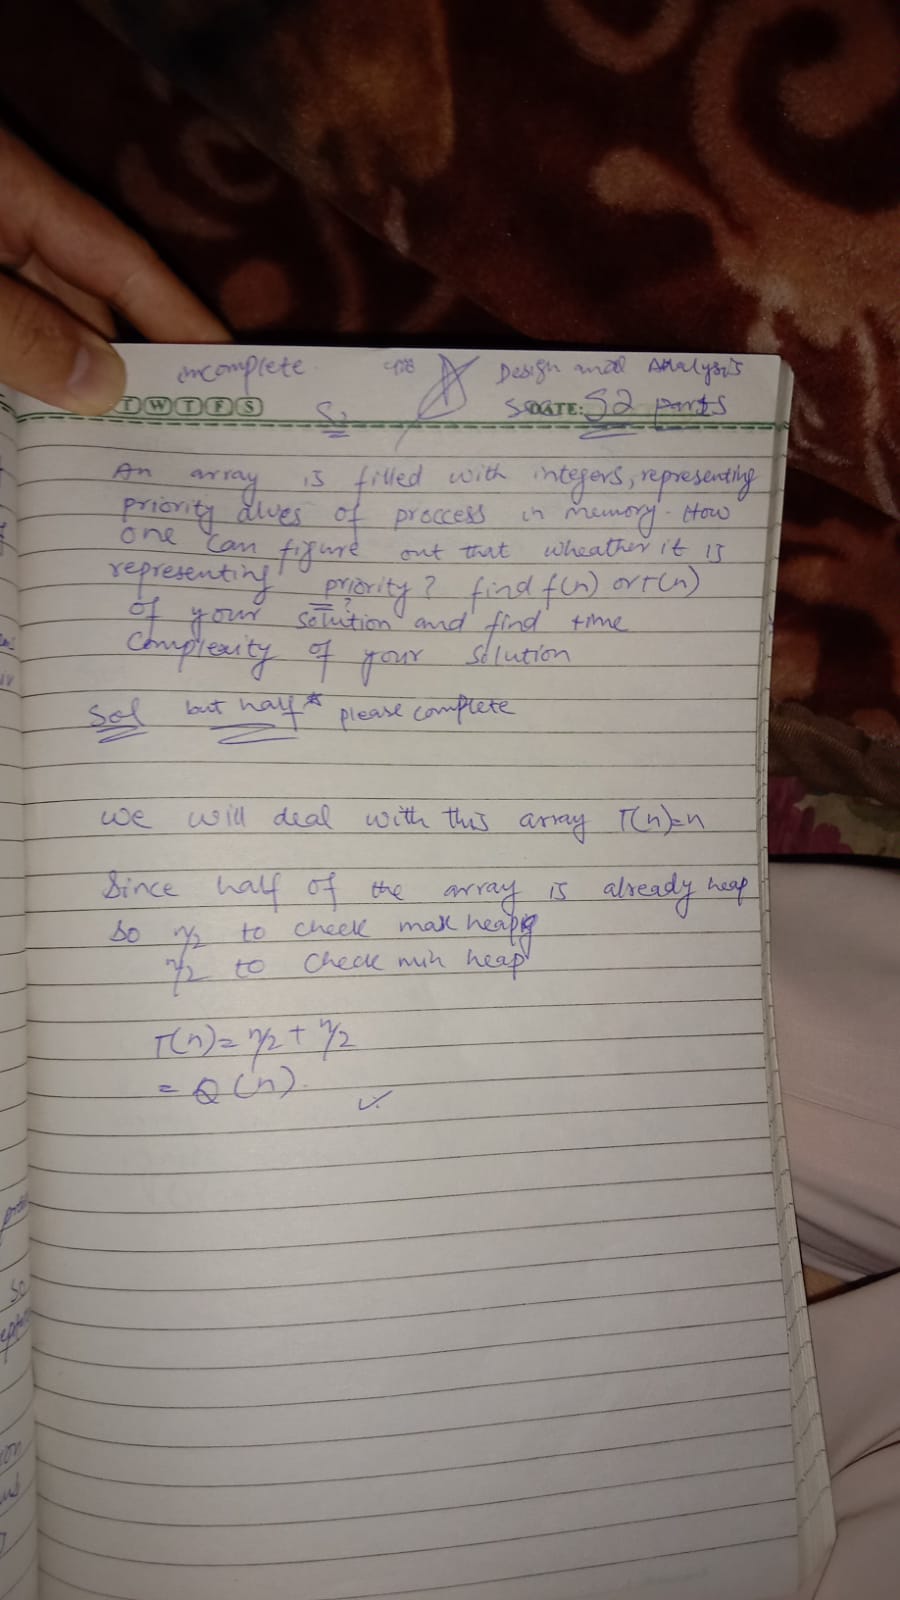 incomplete
Design and Analysis
T W T F S
S2
DATE: S2 parts
An array is filled with integers, representing
priority alues of proccess in memory. How
one can figure out that wheather it is
representing priority? find f(n) or T(n)
of your solution and find time
Complexity of your Solution
Sol but half * please complete
We will deal with this array T(n)=n
Since half of the array is already heap
so n/2 to check max heap
n/2 to check min heap
T(n)= n/2 + n/2
= Q(n).